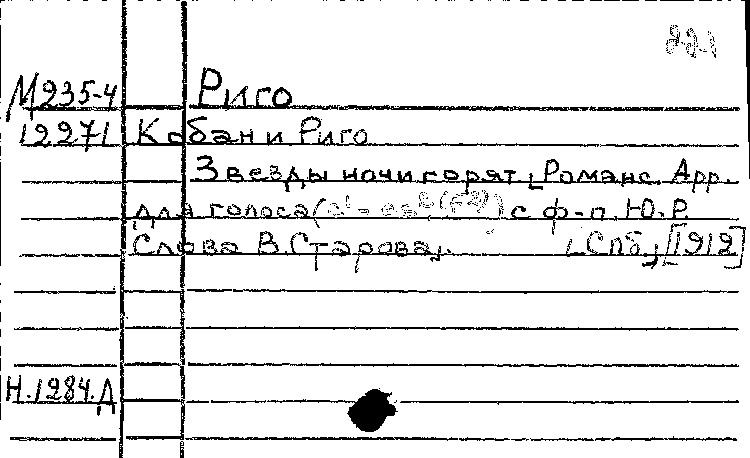 221
М235-4 Риго
12271 Кабани Риго
Звезды ночи горят. [Романс. Арр.
для голоса (d¹ - es² (f²)) с ф-п. Ю.Р.
Слова В. Старова]. [Спб.] [1912]
Н.1284.Д